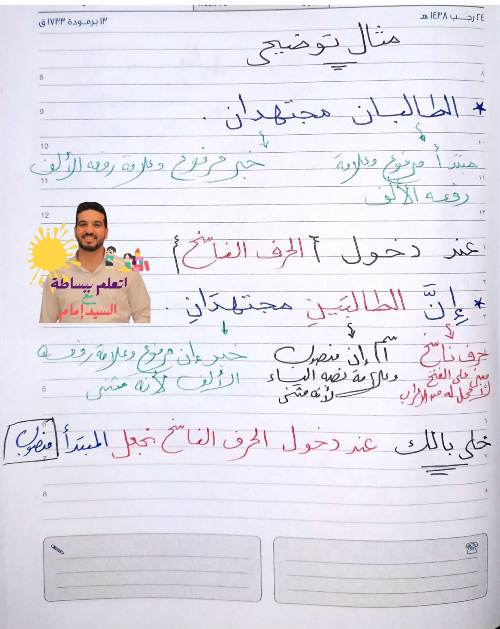 ٢٤ رجب ١٤٣٨ هـ
١٣ برمودة ١٧٣٣ ق
مثال توضيحى
* الطالبان مجتهدان.
مبتدأ مرفوع وعلامة رفعه الألف
خبر مرفوع وعلامة رفعه الألف
عند دخول "الحرف الناسخ"
* إِنَّ الطالبَينِ مجتهدَانِ.
حرف ناسخ مبنى على الفتح لا محل له من الإعراب
اسم إن منصوب وعلامة نصبه الياء لأنه مثنى
خبر إن مرفوع وعلامة رفعه الألف لأنه مثنى
اتعلم ببساطة
مع
السيد إمام
خلى بالك عند دخول الحرف الناسخ نجعل المبتدأ منصوب